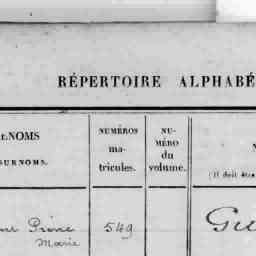 RÉPERTOIRE ALPHABÉ
ET NOMS
SURNOMS.
NUMÉROS
ma-
tricules.
NU-
MÉRO
du
volume.
N
(Il doit être
Pierre
Marie
549
Gu